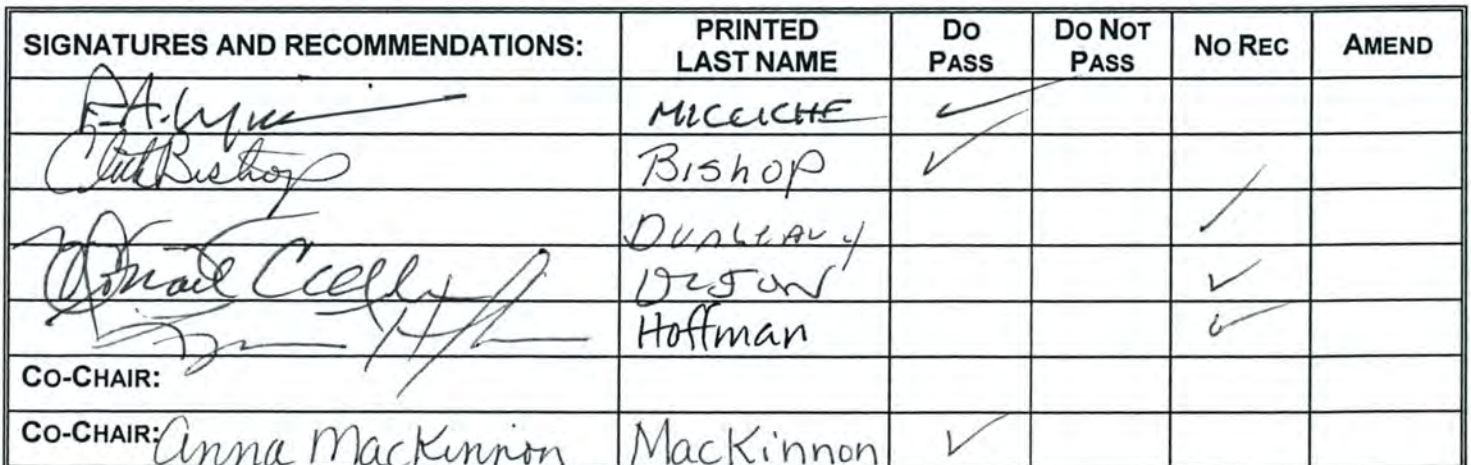 SIGNATURES AND RECOMMENDATIONS: PRINTED LAST NAME DO PASS DO NOT PASS NO REC AMEND
MICCICHE ✓
Click Bishop Bishop ✓
DUNLEAVY ✓
Donald Olson ✓
Hoffman ✓
CO-CHAIR:
CO-CHAIR: Anna MacKinnon MacKinnon ✓